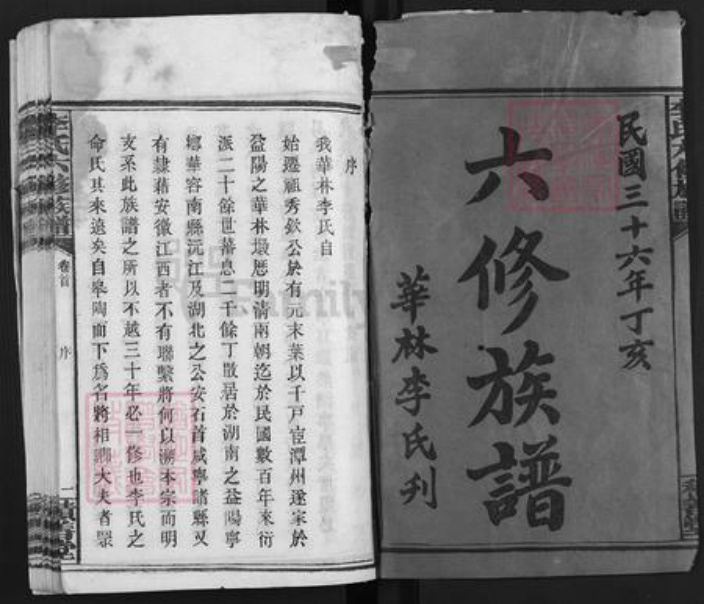 民國三十六年丁亥
六修族譜
華林李氏刋
序
我華林李氏自
始遷祖秀欽公於有元末葉以千戶宦潭州遂家於
益陽之華林塅歷明清兩朝迄於民國數百年來衍
派二十餘世蕃息二千餘丁散居於湖南之益陽寧
鄉華容南縣沅江及湖北之公安石首咸寧諸縣又
有隸藉安徽江西者不有聯繫將何以溯本宗而明
支系此族譜之所以不越三十年必一修也李氏之
命氏其來遠矣自皋陶而下爲名將相卿大夫者眾
李氏六修族譜
卷首
序